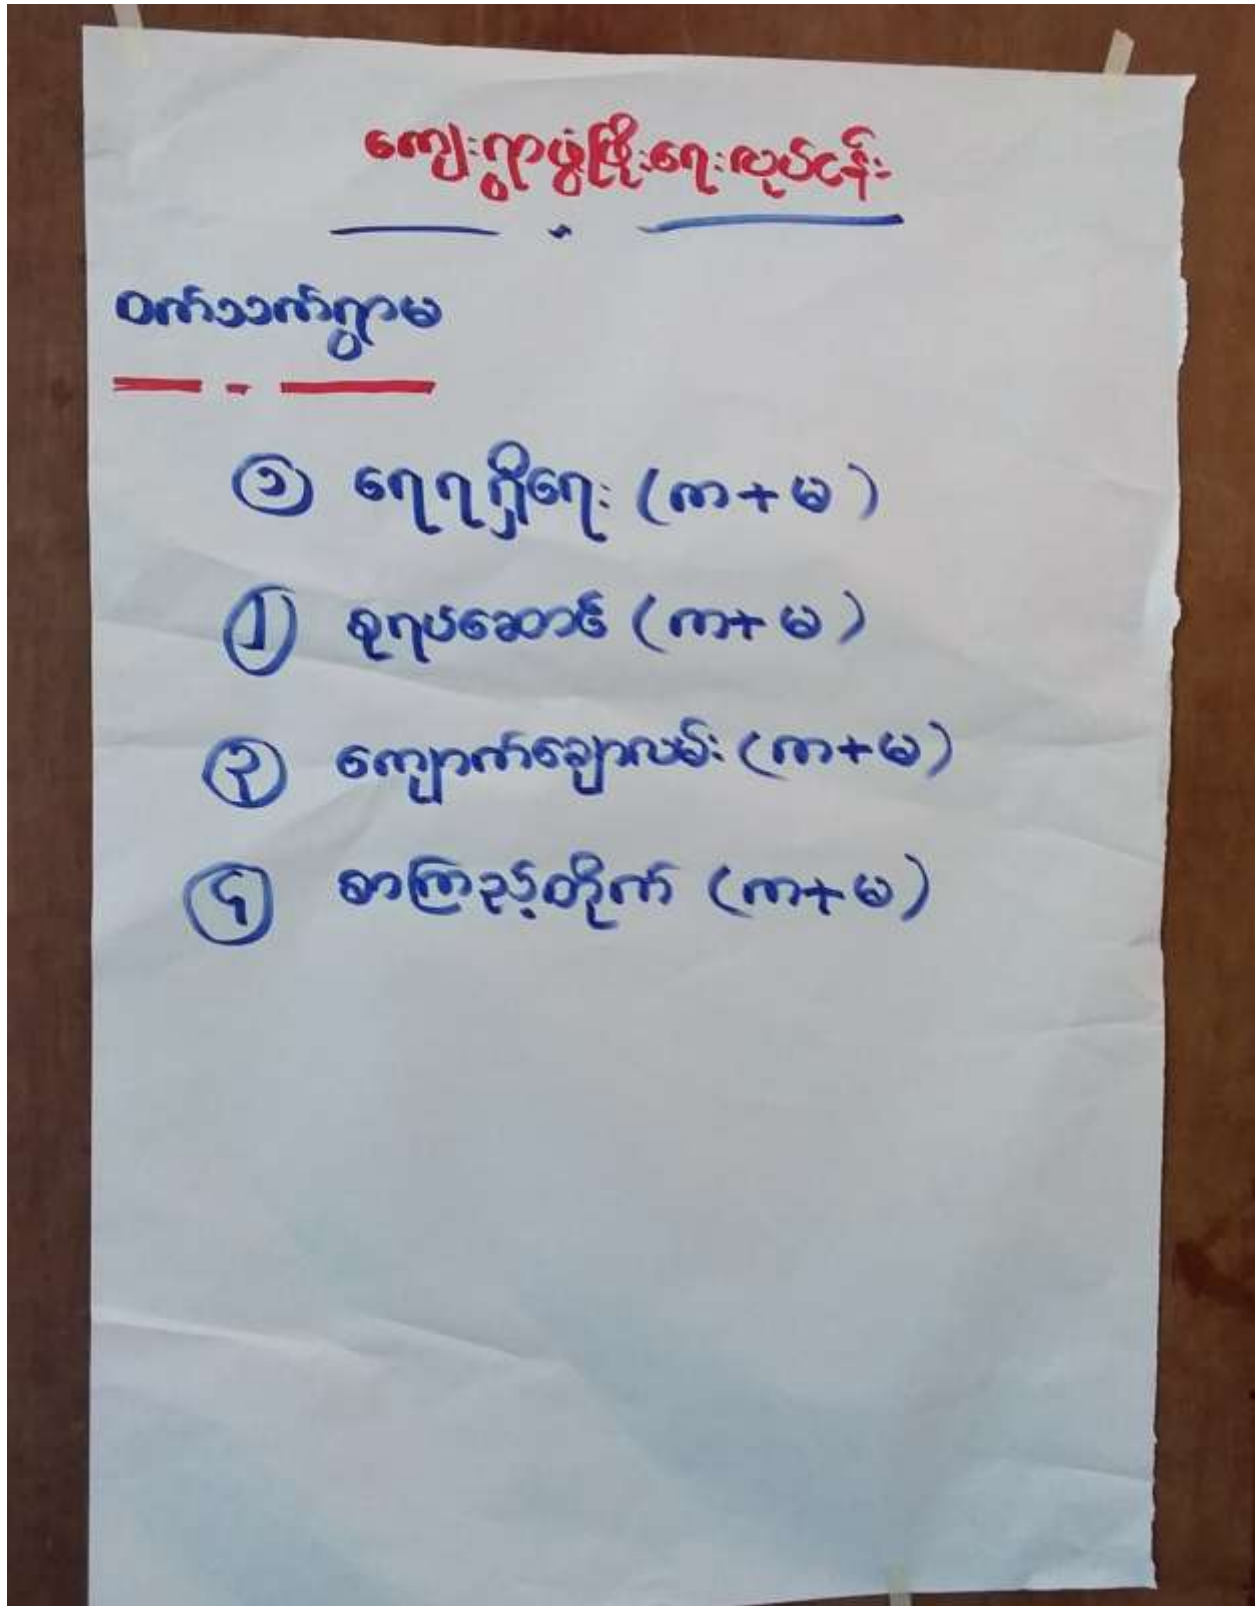 ကျေးရွာဖွံ့ဖြိုးရေးလုပ်ငန်း
ဝက်သက်ရွာမ
၁ ရေရရှိရေး (ကာ+မ)
၂ စုရပ်ဆောင် (ကာ+မ)
၃ ကျောက်ချောလမ်း (ကာ+မ)
၄ စာကြည့်တိုက် (ကာ+မ)